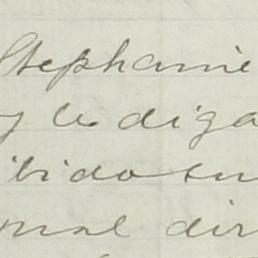 Stephanie
y le diga
ibido su
onal dir